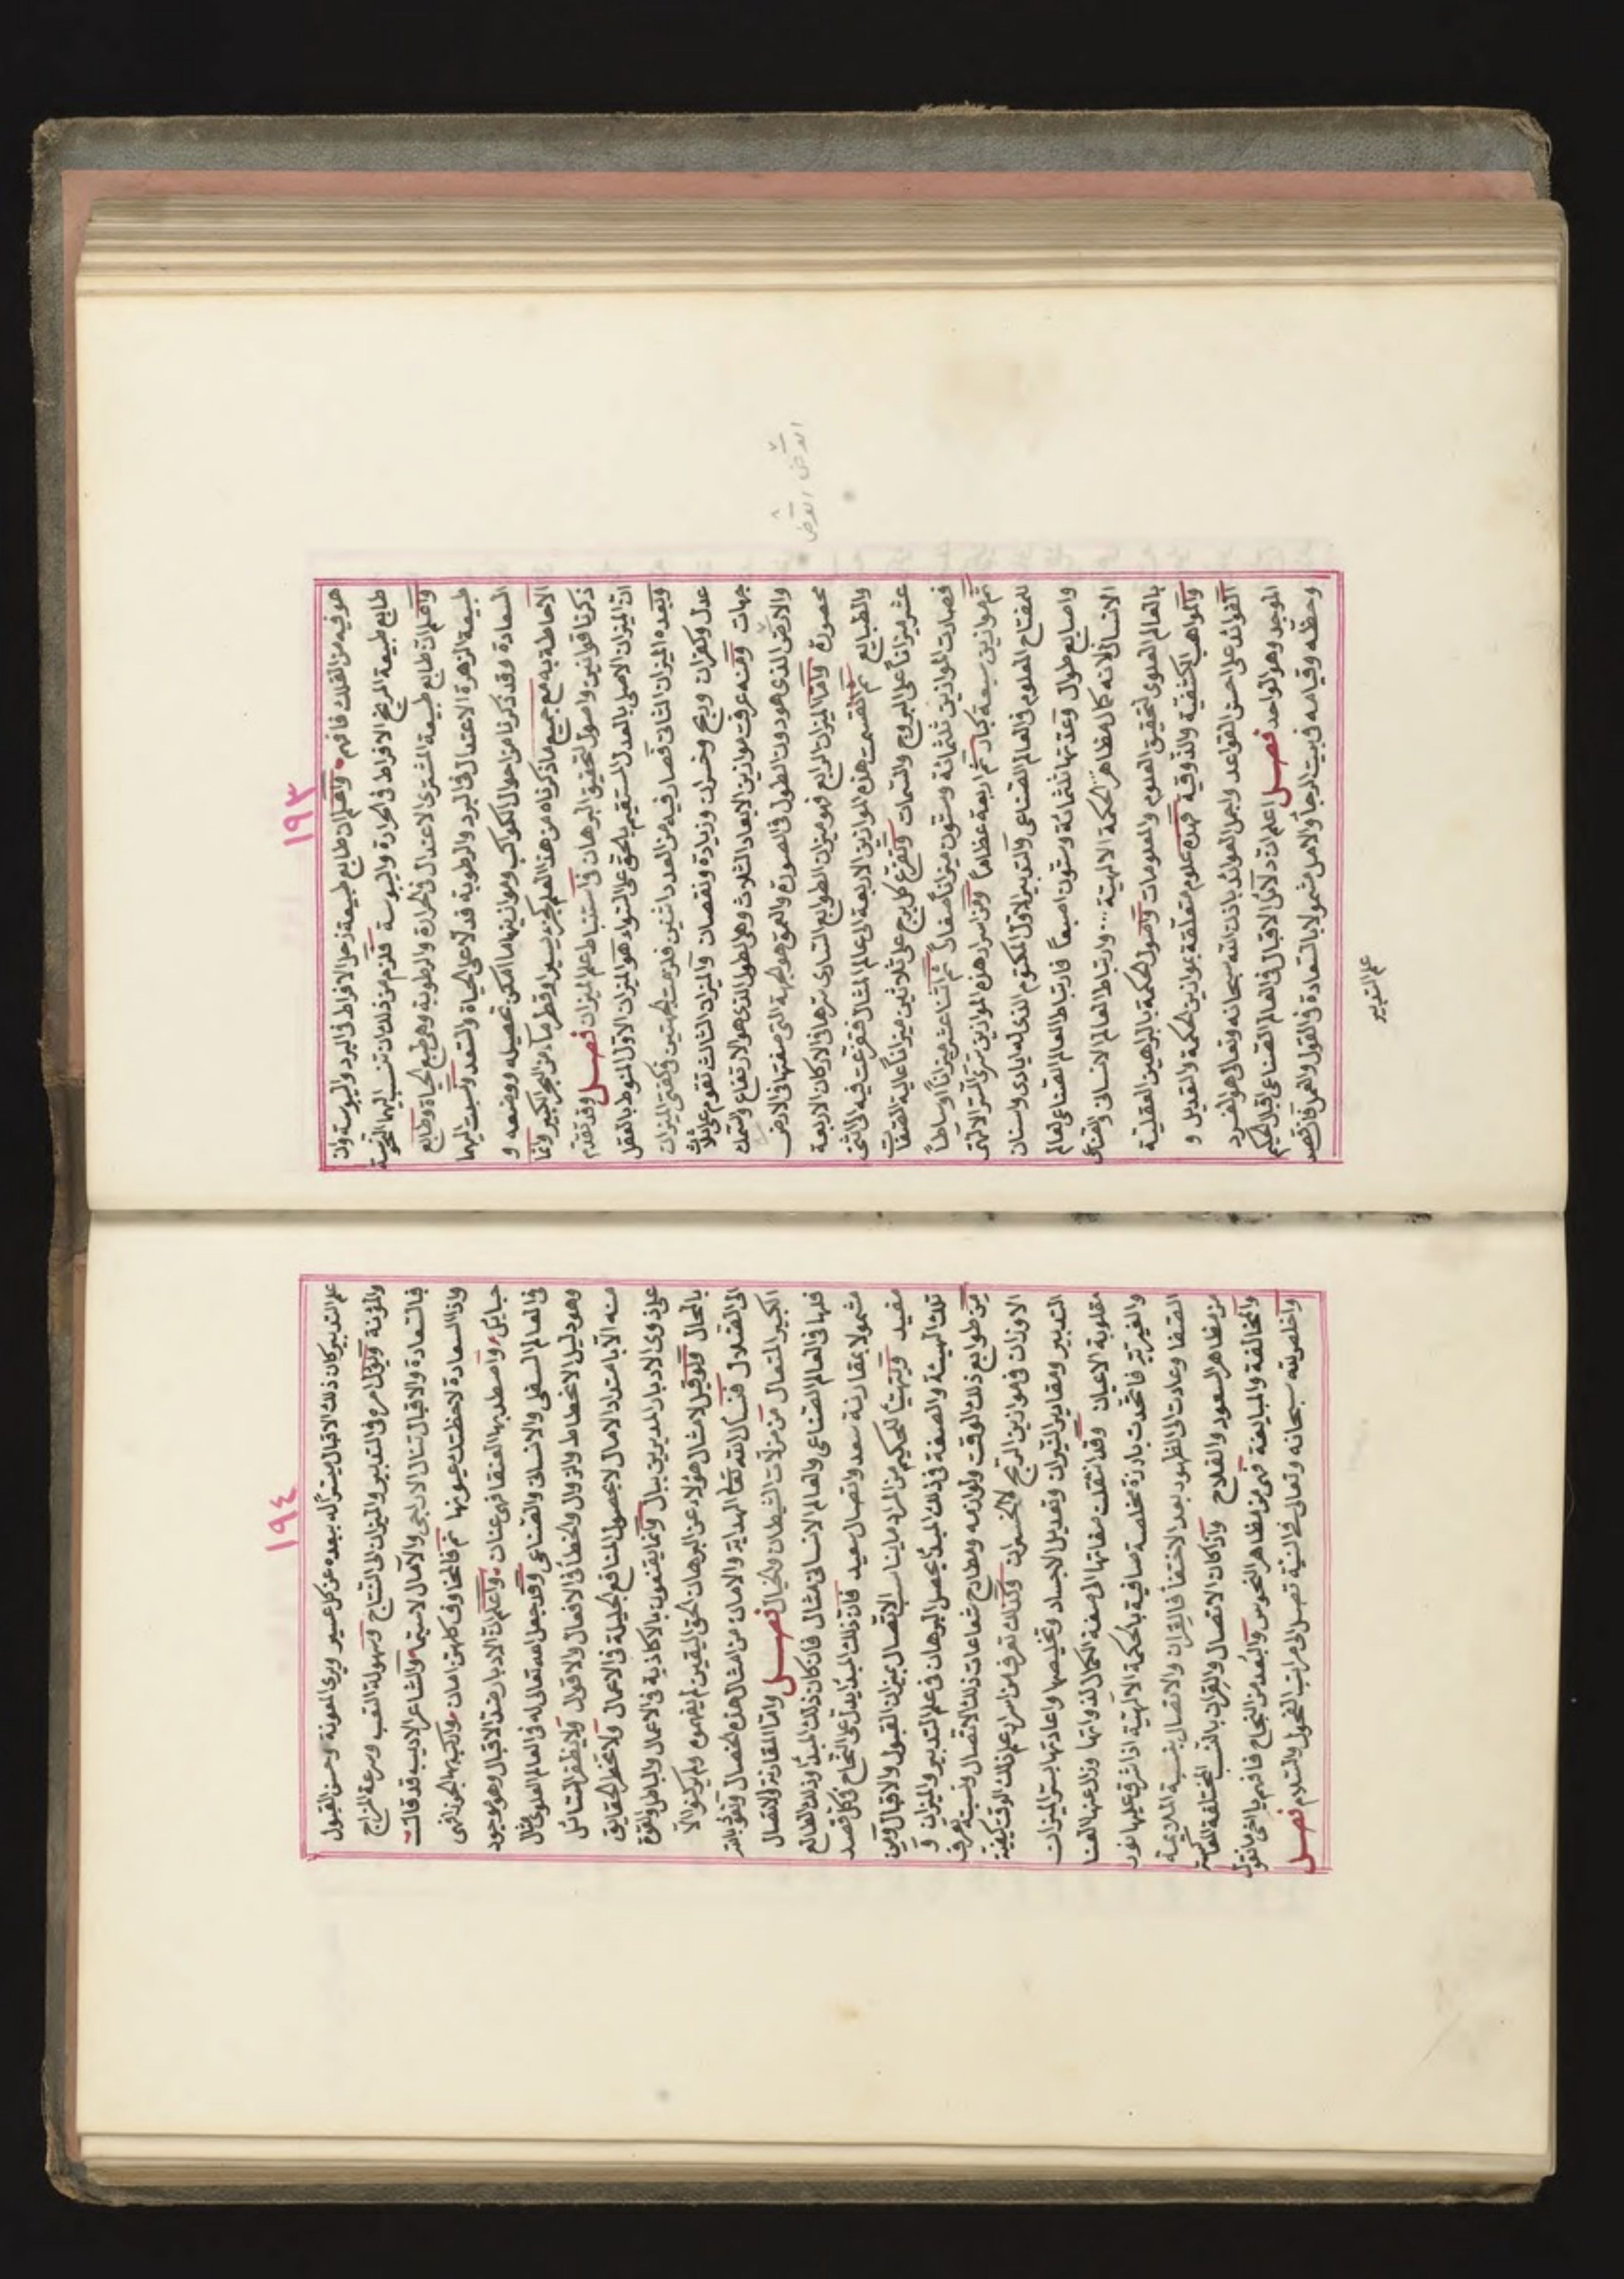 ١٩٣
هو فيه من الفلك فافهم واعلم ان طابع طبيعة زحل الافراط فى البرد واليبوسة وان
طابع طبيعة المريخ الافراط فى الحرارة واليبوسة فلزم من ذلك ان تنسب اليهما النحوسة
واعلم ان طابع طبيعة المشترى الاعتدال فى الحرارة والرطوبة وهى طبع الحياة وطابع
طبيعة الزهرة الاعتدال فى البرد والرطوبة فدلّا على الحياة والسعد ونسبت اليهما
السعادة وقد ذكرنا من احوال الكواكب وموازينها ما امكن تحصيله ووضعه و
الاحاطة به مع جميع ما ذكرناه من هذا العلم جزء يسير او قطر ماء من البحر الكبير وانما
ذكرنا قوانين واصول لتحقيق البرهان فى استنباط علم الميزان فصل وقد تقدم
انّ الميزان الاصلى بالعدل المستقيم بالحق على السواء هو الميزان الاول المنوط بالعقل
وبعده الميزان الثانى فصار فيه من العدد اثنين فلزمت لجهتين فى كفتى الميزان
عدل وكفران وربح وخسران وزيادة ونقصان والميزان الثالث تقوم على ثلاث
جهات ومنه عرفت موازين الابعاد الثلاث وهى الطول الذى هو الارتفاع والسمك
والارض الذى هو دون الطول فى الصورة والعمق هو الجهة التى صفتها فى الارض
محصورة واما الميزان الرابع فهو ميزان الطوابع السارى سرها فى الاركان الاربعة
والطبايع ثم انقسمت هذه الموازين الاربعة الى عالم المثال فتفرعت فيه الى اثنى
عشر ميزاناً على البروج والسمات وتفرع كل برج على ثلاثين ميزاناً عالية الصفات
فصارت الموازين ثلثمائة وستون ميزاناً صغاراً ثم اثنا عشر ميزاناً اوساطاً
ثم موازين سبعة كبار ثم اربعة عظاماً ومن اسرار هذه الموازين سرى السر الالهى
للمفتاح المعلوم فى العالم الصناعى والتدبير الاول المكتوم الذى له ايادى واسنان
واصابع طوال وعدتها ثلثمائة وستون اصبعاً فارتباط العالم الصناعى بالعالم
الانسانى لانه كمال مظاهر الحكمة الالهية وارتباط العالم الانسانى والصناعى
بالعالم العلوى لتحقيق العلوم والمعلومات واصول الحكمة بالبراهين العقلية
والمواهب الكشفية والذوقية فهذه علوم متعلقة بموازين الحكمة والتعديل و
الفوائد على احسن القواعد واجمل العوائد باذن الله سبحانه وتعالى هو الفرد
الموجد وهو الواحد فصل اعلم ان دلائل الاقبال فى العالم الصناعى اقبال الحكيم
وحظّه وقيامه فى بيت الرجا والامل مشمولا بالسعادة فى القول والعمل فان قصد
علم التدبير
١٩٤
علم التدبير كان ذلك الاقبال ميسر له ببعده عن كل عسير ويرى المعونة وحسن القبول
والمؤنة ويؤل امره فى التدبير والميزان الى النتاج وسهولة التعب وسرعة المزاج
فالسعادة والاقبال تنال الاراجى والآمال لا سيما والشاعر الاديب قد قال
واذا السعادة لاحظتك عيونها نم فالمخاوف كلهن امان واركب بها الجوزا فهى
حبايل واصطد بها العنقا فهى عنان واعلم ان الادبار ضد الاقبال وهو موجود
فى العالم السفلى والانسانى والصناعى وقد جعل الله تعالى له فى العالم العلوى مثال
وهو دليل الانحطاط والزوال والخطأ فى الافعال والاقوال ولا يظفر السائل
منه الا بامتداد الامال لا بحصول المنافع الجليلة فى الاعمال ولا تخطر الحقايق
على ذوى الادبار المدبرين ببال وانما يقنعون بالاكاذبة فى الاعمال والباطل والقوة
بالمحال ولو قيل لامثال هؤلاء عن البرهان الحق اليقين لم يفهموه ولم يركنوا الا
الى الضلال فنسأل الله تعالى الهداية والامان من امثال هذه الخصال ونعوذ بالله
الكبير المتعال من مزلات الشيطان والخيال فصل واما المقارنة والاتصال
فلها فى العالم الصناعى والعالم الانسانى مثال فان كان ذلك المبدأ وذلك الطالع
مشمولا بمقارنة سعد واتصال سعيد فان ذلك المبدأ يدل على النجاح فكل قصد
مفيد ويتهيأ للحكيم من المراد ما يناسب الاتصال بميزان القبول والاقبال ومن
تلك الهيئة والصفة فى ذلك المبدأ يحصل البرهان فى علم التدبير والميزان و
من طوابع ذلك الوقت ولوازمه ومطارح شعاعات ذلك الاتصال ونسبته تعرف
الاوزان فى موازين الربح لا الخسران وكذلك تعرف من اسرار علم ذلك الوقت كيفية
التدبير ومقادير النيران وتعديل الاجساد وتخليصها واعادتها بسر الميزان
مقلوبة الاعيان وقد انتقلت صفاتها الى صفة الكمال لذواتها وزال عنها العنا
والغير تير فاتحدت بادزة مخلصة صافية بالحكمة الالهية اذ اشرق عليها نور
الصفا وعادت الى الظهور بعد الاختفا فالقران والاتصال بنسبة الملايمة
من مظاهر السعود والفلاح واذا كان الاتصال والقران بالنسب المختلفة المعاكسة
والمخالفة والمباينة فهى من مظاهر النحوس والبعد من النجاح فافهم يا اخى ما نقول
واخلص لله سبحانه وتعالى فى النية تصل الى مراتب الفحول والسلام فصل